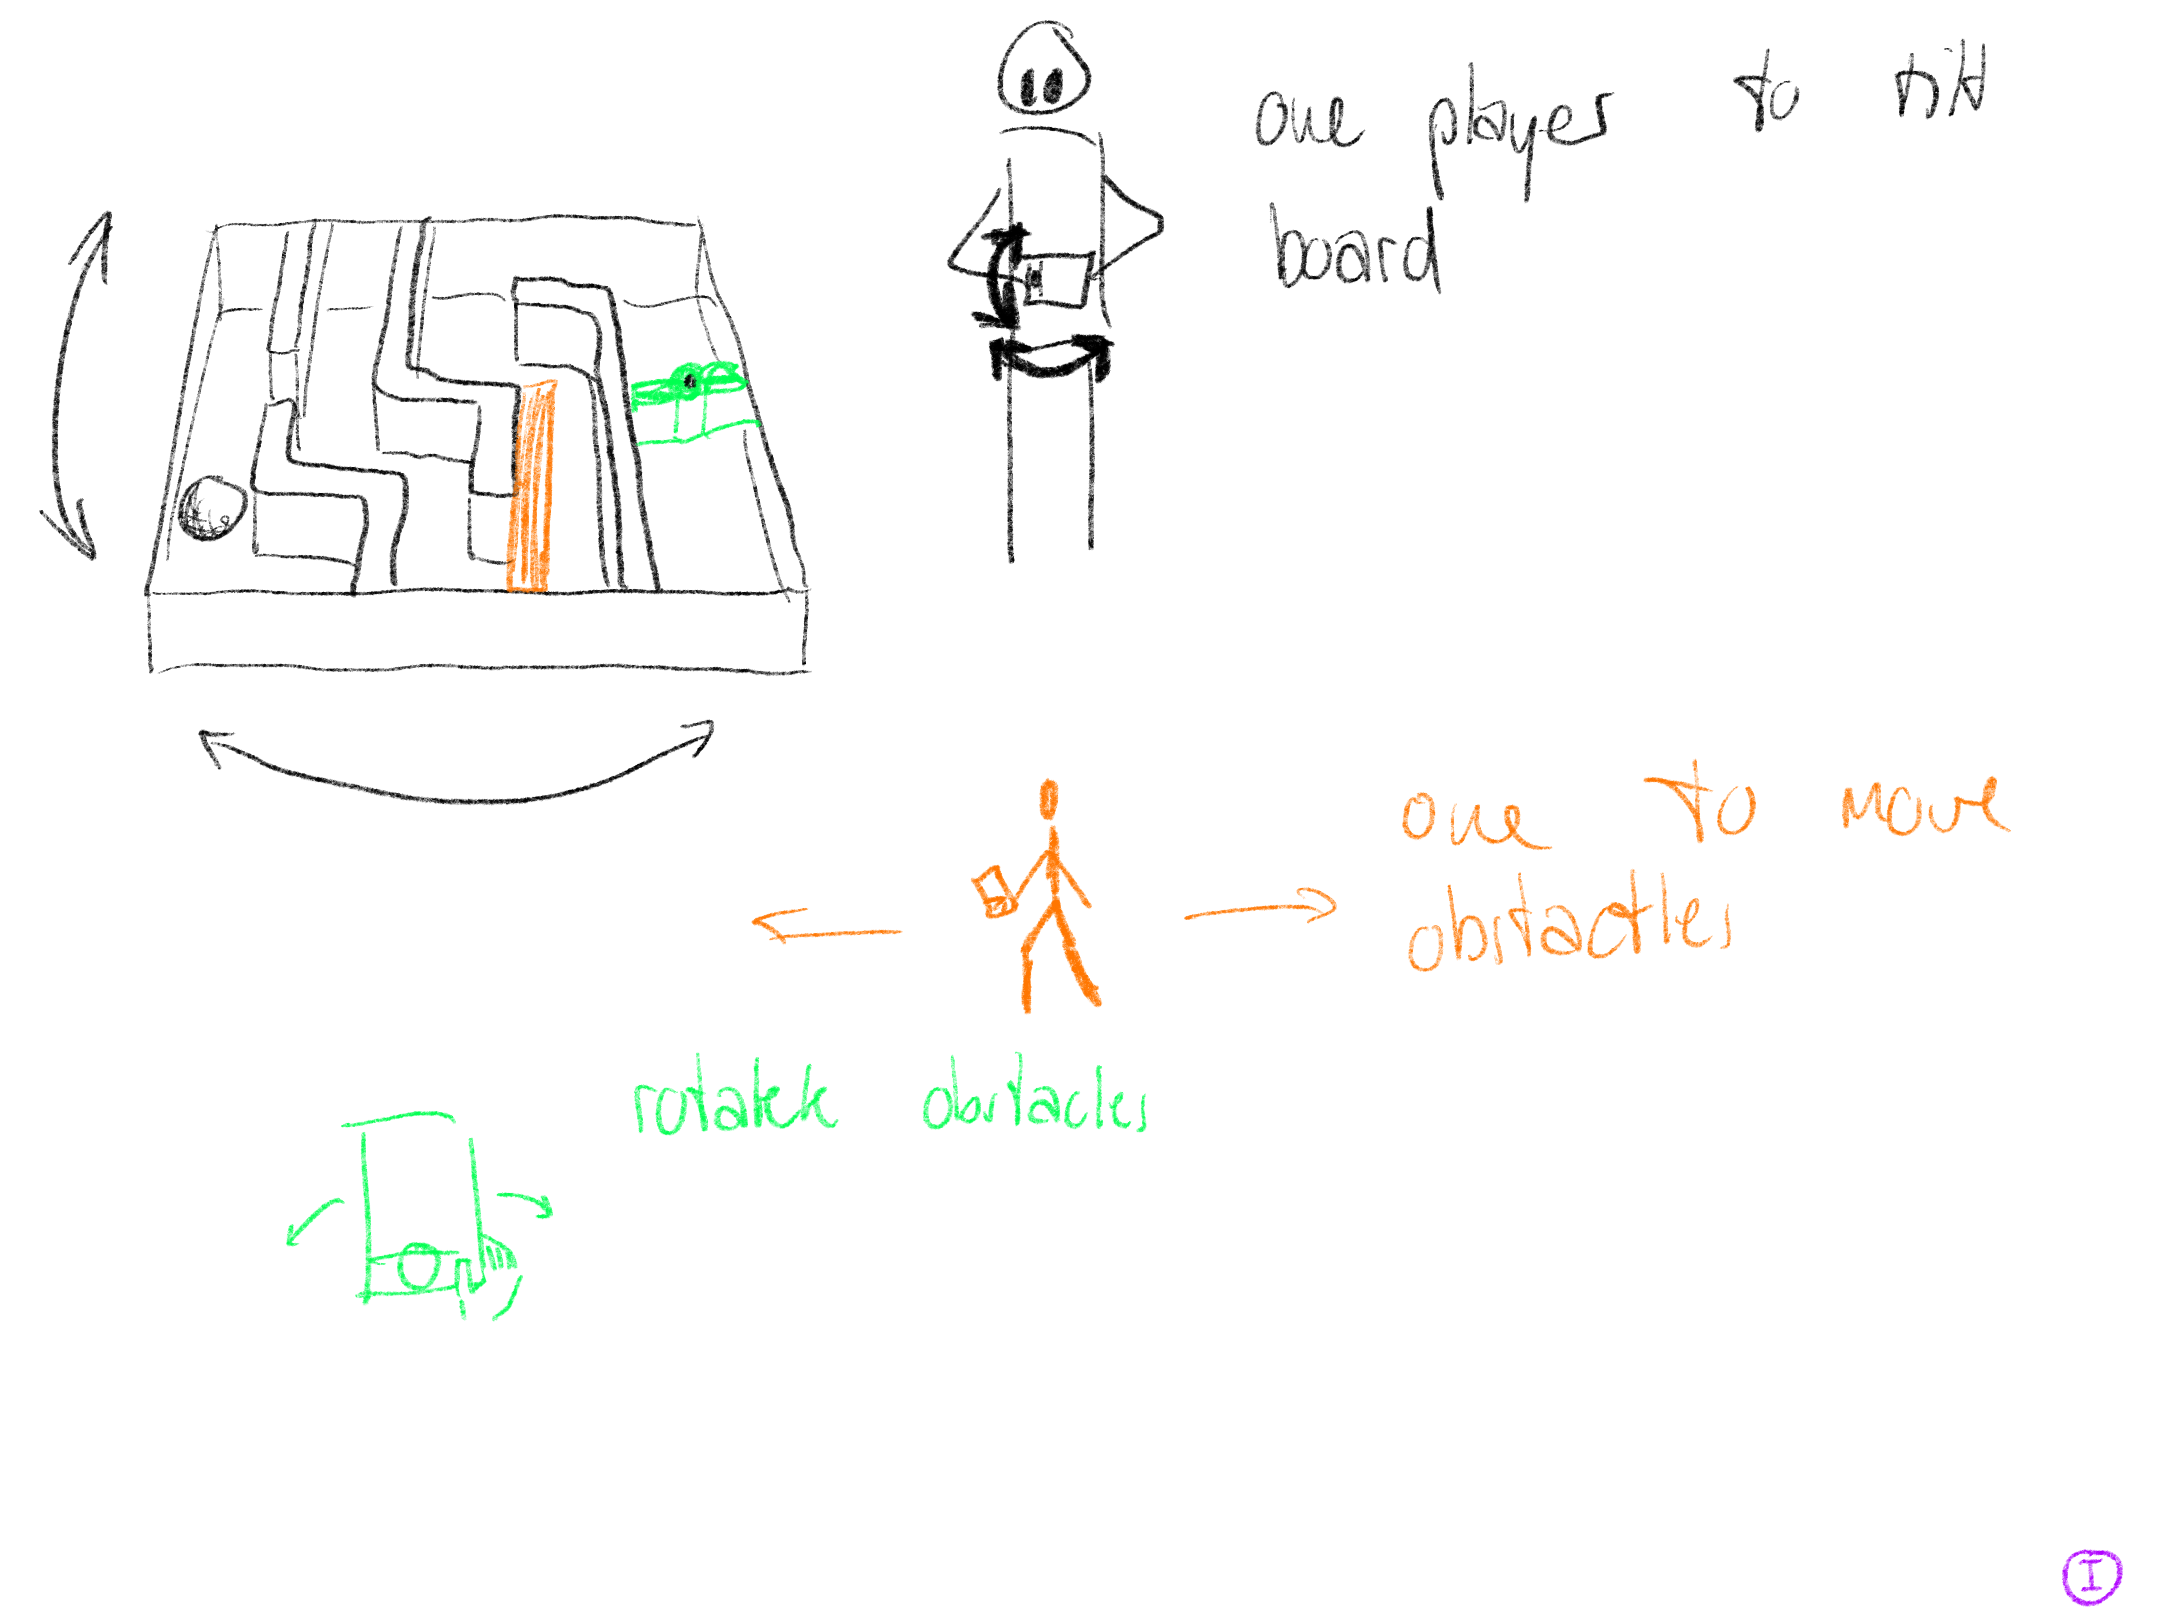 one player to tilt
board
one to move
obstactles
rotatek obstacles
I